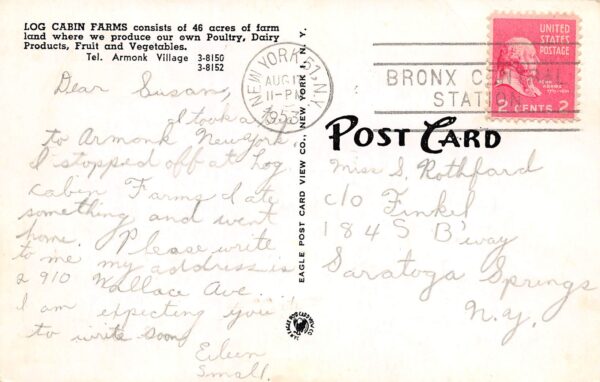 LOG CABIN FARMS consists of 46 acres of farm
land where we produce our own Poultry, Dairy
Products, Fruit and Vegetables.
Tel. Armonk Village 3-8150
3-8152
Dear Susan,
I took a
to Armonk New York.
I stopped off at Log
Cabin Farms I ate
something and went
home. Please write
to me my address is
2910 Wallace Ave.
I am expecting you
to write soon
Eileen
Small
EAGLE POST CARD VIEW CO., NEW YORK 1, N. Y.
NEW YORK, 57, N.Y.
AUG
11-PM
1953
BRONX CENTRAL
STATION
UNITED
STATES
POSTAGE
2 CENTS 2
POST CARD
Miss S. Rothfard
c/o Finkel
184 S B'way
Saratoga Springs
N.Y.